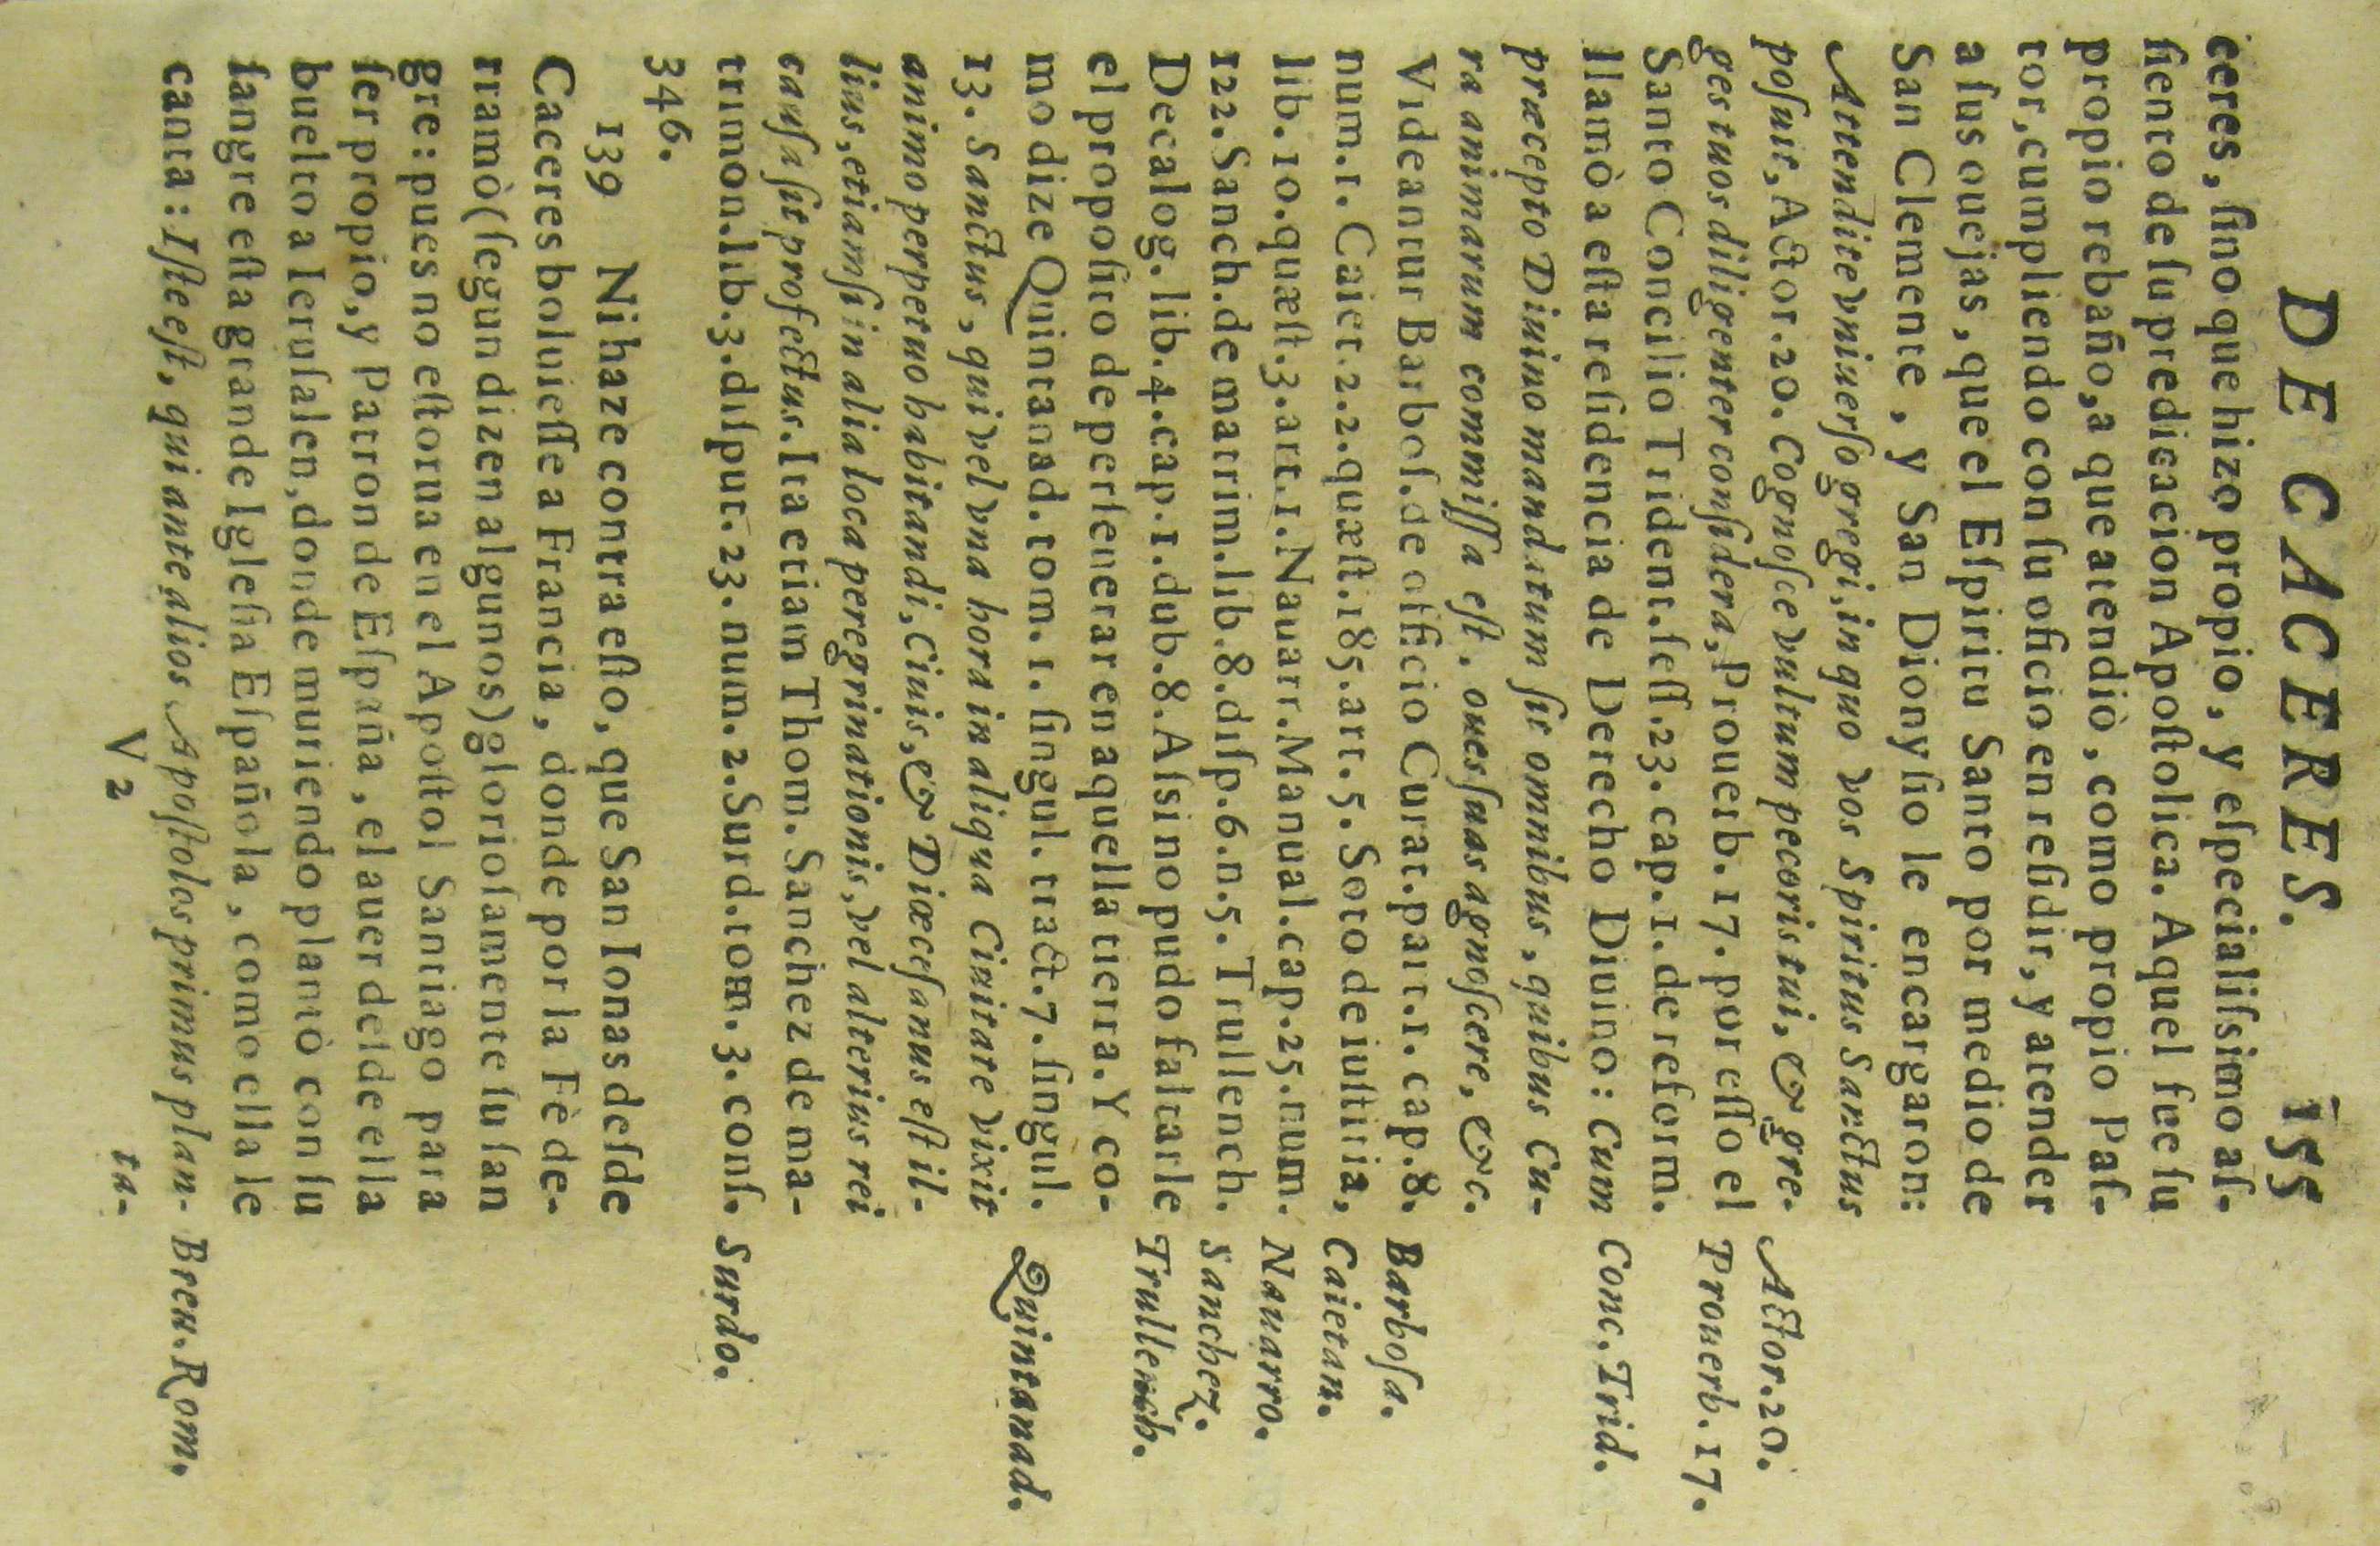 DE CACERES. 155
ceres, ſino que hizo propio, y eſpecialiſsimo aſ-
ſiento de ſu predicacion Apoſtolica. Aquel fue ſu
propio rebaño, a que atendiò, como propio Paſ-
tor, cumpliendo con ſu oficio en reſidir, y atender
a ſus ouejas, que el Eſpiritu Santo por medio de
San Clemente, y San Dionyſio le encargaron:
Attendite vniuerſo gregi, in quo vos Spiritus Sanctus
poſuit, Actor. 20. Cognoſce vultum pecoris tui, & gre- Actor. 20.
ges tuos diligenter conſidera, Prouerb. 17. por eſſo el Prouerb. 17.
Santo Concilio Trident. ſeſſ. 23. cap. 1. de reform.
llamò a eſta reſidencia de Derecho Diuino: Cum Conc. Trid.
præcepto Diuino mandatum ſit omnibus, quibus Cu-
ra animarum commiſſa eſt, oues ſuas agnoſcere, &c.
Videantur Barboſ. de officio Curat. part. 1. cap. 8. Barboſa.
num. 1. Caiet. 2. 2. quæſt. 185. art. 5. Soto de iuſtitia, Caietan.
lib. 10. quæſt. 3. art. 1. Nauarr. Manual. cap. 25. num. Nauarro.
122. Sanch. de matrim. lib. 8. diſp. 6. n. 5. Trullench. Sanchez.
Decalog. lib. 4. cap. 1. dub. 8. Aſsi no pudo faltarle Trullench.
el propoſito de perſeuerar en aquella tierra. Y co-
mo dize Quintanad. tom. 1. ſingul. tract. 7. ſingul. Quintanad.
13. Sanctus, qui vel vna hora in aliqua Ciuitate vixit
animo perpetuo habitandi, Ciuis, & Diœceſanus eſt il-
lius, etiamſi in alia loca peregrinationis, vel alterius rei
cauſa ſit profectus. Ita etiam Thom. Sanchez de ma-
trimon. lib. 3. diſput. 23. num. 2. Surd. tom. 3. conſ. Surdo.
346.
139 Ni haze contra eſto, que San Ionas deſde
Caceres boluieſſe a Francia, donde por la Fè de-
rramò (ſegun dizen algunos) glorioſamente ſu ſan
gre: pues no eſtorua en el Apoſtol Santiago para
ſer propio, y Patron de Eſpaña, el auer deſde ella
buelto a Ieruſalen, donde muriendo plantò con ſu
ſangre eſta grande Igleſia Eſpañola, como ella le
canta: Iſte eſt, qui ante alios Apoſtolos primus plan- Breu. Rom.
V 2 ta-